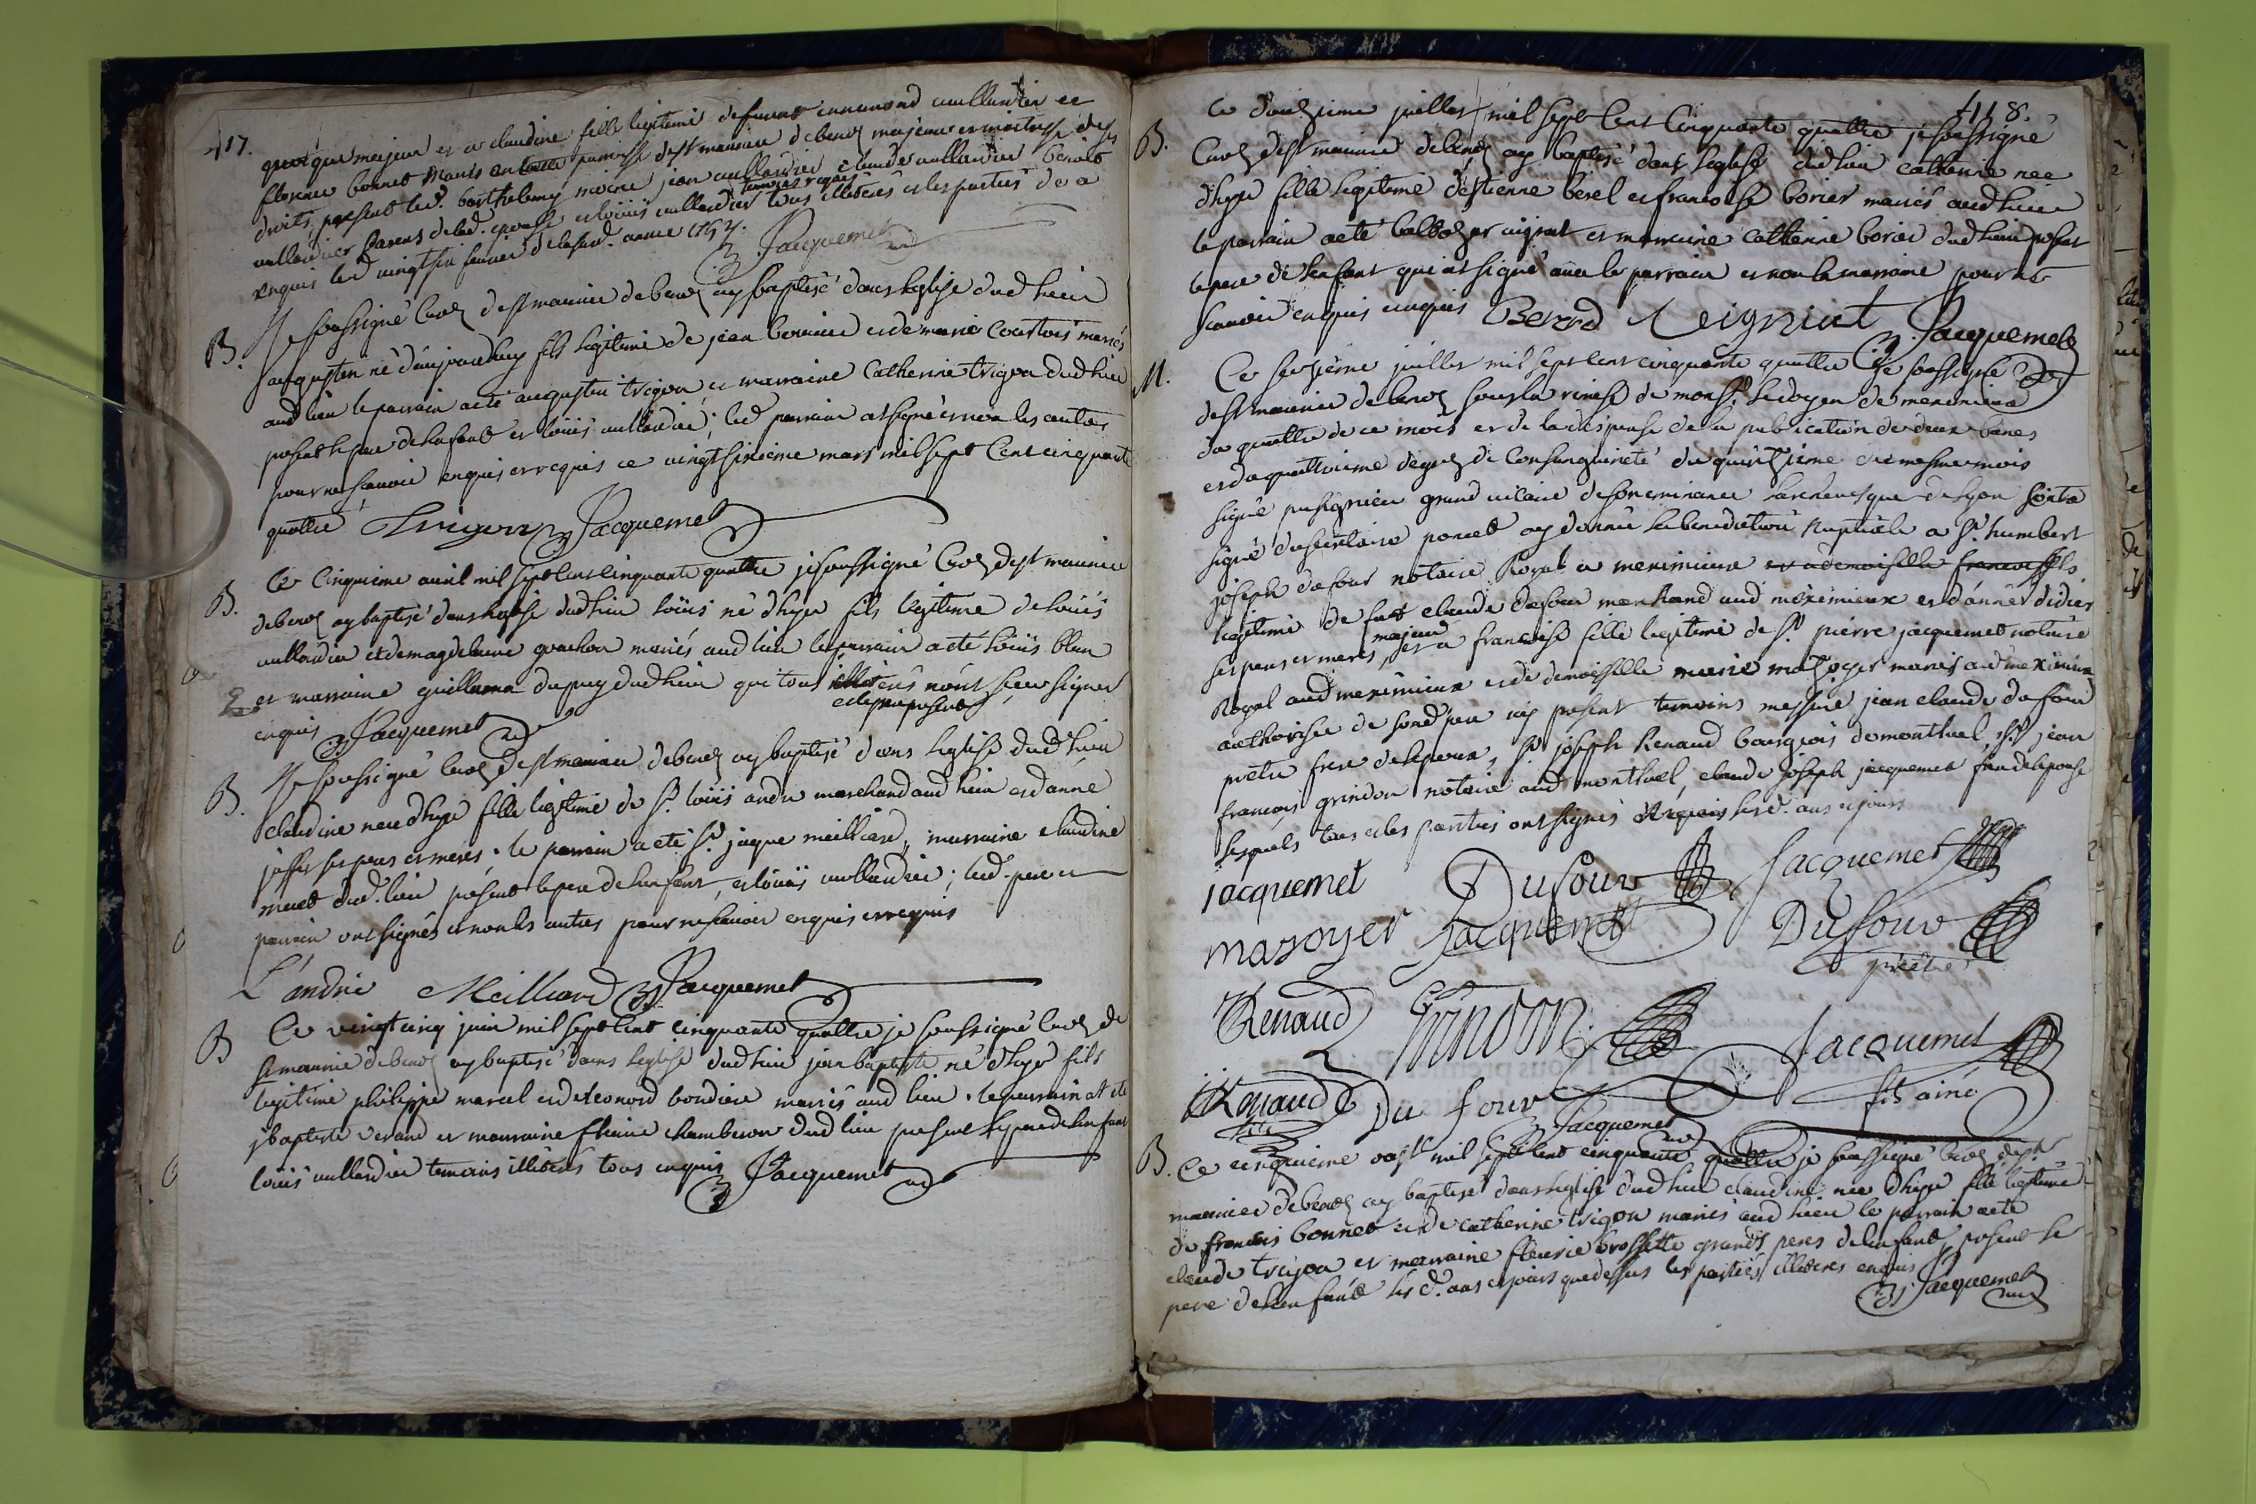 417.
quoique majeur et a claudine fille legitime de feu ennemond cullandier et
fleurie bonnet mariés en cette paroisse de st maurice de beno majeure et maitresse de ses
droits, present led. barthelemy moine jean cullandier claude cullandier benoit
temoins requis
cullandier parens de lad. epouse et loüis cullandier tous illiteres et les parties de ce
enquis led vingt six fevrier de la susd. année 1754.
Jacquemet
B. Je soussigné curé de st maurice de beno ay baptisé dans l'eglise dud lieu
augustin né d'aujourdhuy fils legitime de jean et de marie courtois mariés
aud lieu le parrain a eté augustin trigon et marraine catherine trigon dud lieu
present le pere de l'enfant et loüis cullandier, led parrain a signé et non les autres
pour ne scavoir enquis et requis ce vingt sixieme mars mil sept cent cinquante
quattre Trigon Jacquemet
B. Ce cinquieme avril mil sept cent cinquante quattre je soussigné curé de st maurice
de beno ay baptisé dans l'eglise dud lieu loüis né d'hyer fils legitime de loüis
cullandier et de magdelaine guichon mariés aud lieu le parrain a eté loüis blan
et marraine guillerma dupuy dud lieu qui tous illiterés n'ont sceu signer
et le pere present
enquis Jacquemet
B. Je soussigné curé de st maurice de beno ay baptisé dans l'eglise dud lieu
claudine née d'hyer fille legitime de sr. loüis andre marchand aud lieu et d'anne
ses pere et mere. le parrain a eté sr. jaque meilliard, marraine claudine
dud. lieu present le pere de l'enfant, et loüis cullandier; led. pere et
parrain ont signés et non les autres pour ne scavoir enquis et requis
L'andrié Meilliard Jacquemet
B Ce vingt cinq juin mil sept cent cinquante quattre je soussigné curé de
st maurice de beno ay baptisé dans l'eglise dud lieu jean baptiste né d'hyer fils
legitime philippe marcel et de leonord mariés aud lieu. le parrain at eté
jbaptiste verand et marraine fleurie chamberon dud lieu present le pere de l'enfant
loüis cullandier temoins illiterés tous enquis Jacquemet
418.
B. Ce douzieme juillet mil sept cent cinquante quattre je soussigné
curé de st maurice de beno ay baptisé dans leglise dud lieu catherine née
d'hyer fille legitime d'estienne berel et francoise borier mariés aud lieu
le parrain a eté balthazar et marraine catherine borier dud lieu present
le pere de l'enfant qui at signé avec le parrain et non la marraine pour ne
scavoir enquis Jacquemet
M. Ce seizieme juillet mil sept cent cinquante quattre je soussigné curé
de st maurice de beno sous la remise de monsr. le doyen de meximieux
du quattre de ce mois et de la dispense de la publication de deux bancs
et du quattrieme degré de consanguinité du quinzieme du mesme mois
signé grand vicaire de son eminence l'archevesque de lyon contre
signé du secretaire ay donné la benediction nuptiale a sr. humbert
joseph dufour notaire Royal a meximieux et a demoiselle francoise fils
legitime de feu claude dufour marchand aud meximieux et d'anne didier
majeur
ses pere et mere, et a francoise fille legitime de sr. pierre jacquemet notaire
Royal aud meximieux et de demoiselle marie mazoyer mariés aud meximieux
authorisée de sond pere icy present temoins messire jean claude dufour
pretre frere de l'epoux, sr. joseph Renaud bourgeois de montluel sr. jean
françois grindon notaire aud montluel, claude joseph jacquemet frere de l'epouse
lesquels tous et les parties ont signés requis lesd. ans et jours
jacquemet Dufour Jacquemet
mazoyer Jacquemet Dufour
prêtre
Renaud Grindon Jacquemet
fils ainé
Renaud Du four Jacquemet
B. Ce cinquieme aoust mil sept cent cinquante quattre je soussigné curé de st
maurice de beno ay baptisé dans leglise dud lieu claudine née d'hyer fille legitime
de francois bonnet et de catherine trigon mariés aud lieu le parrain a eté
claude trigon et marraine fleurie brossette grands peres de l'enfant present le
pere de l'enfant lesd. ans et jours que dessus les parties illiteres enquis
Jacquemet